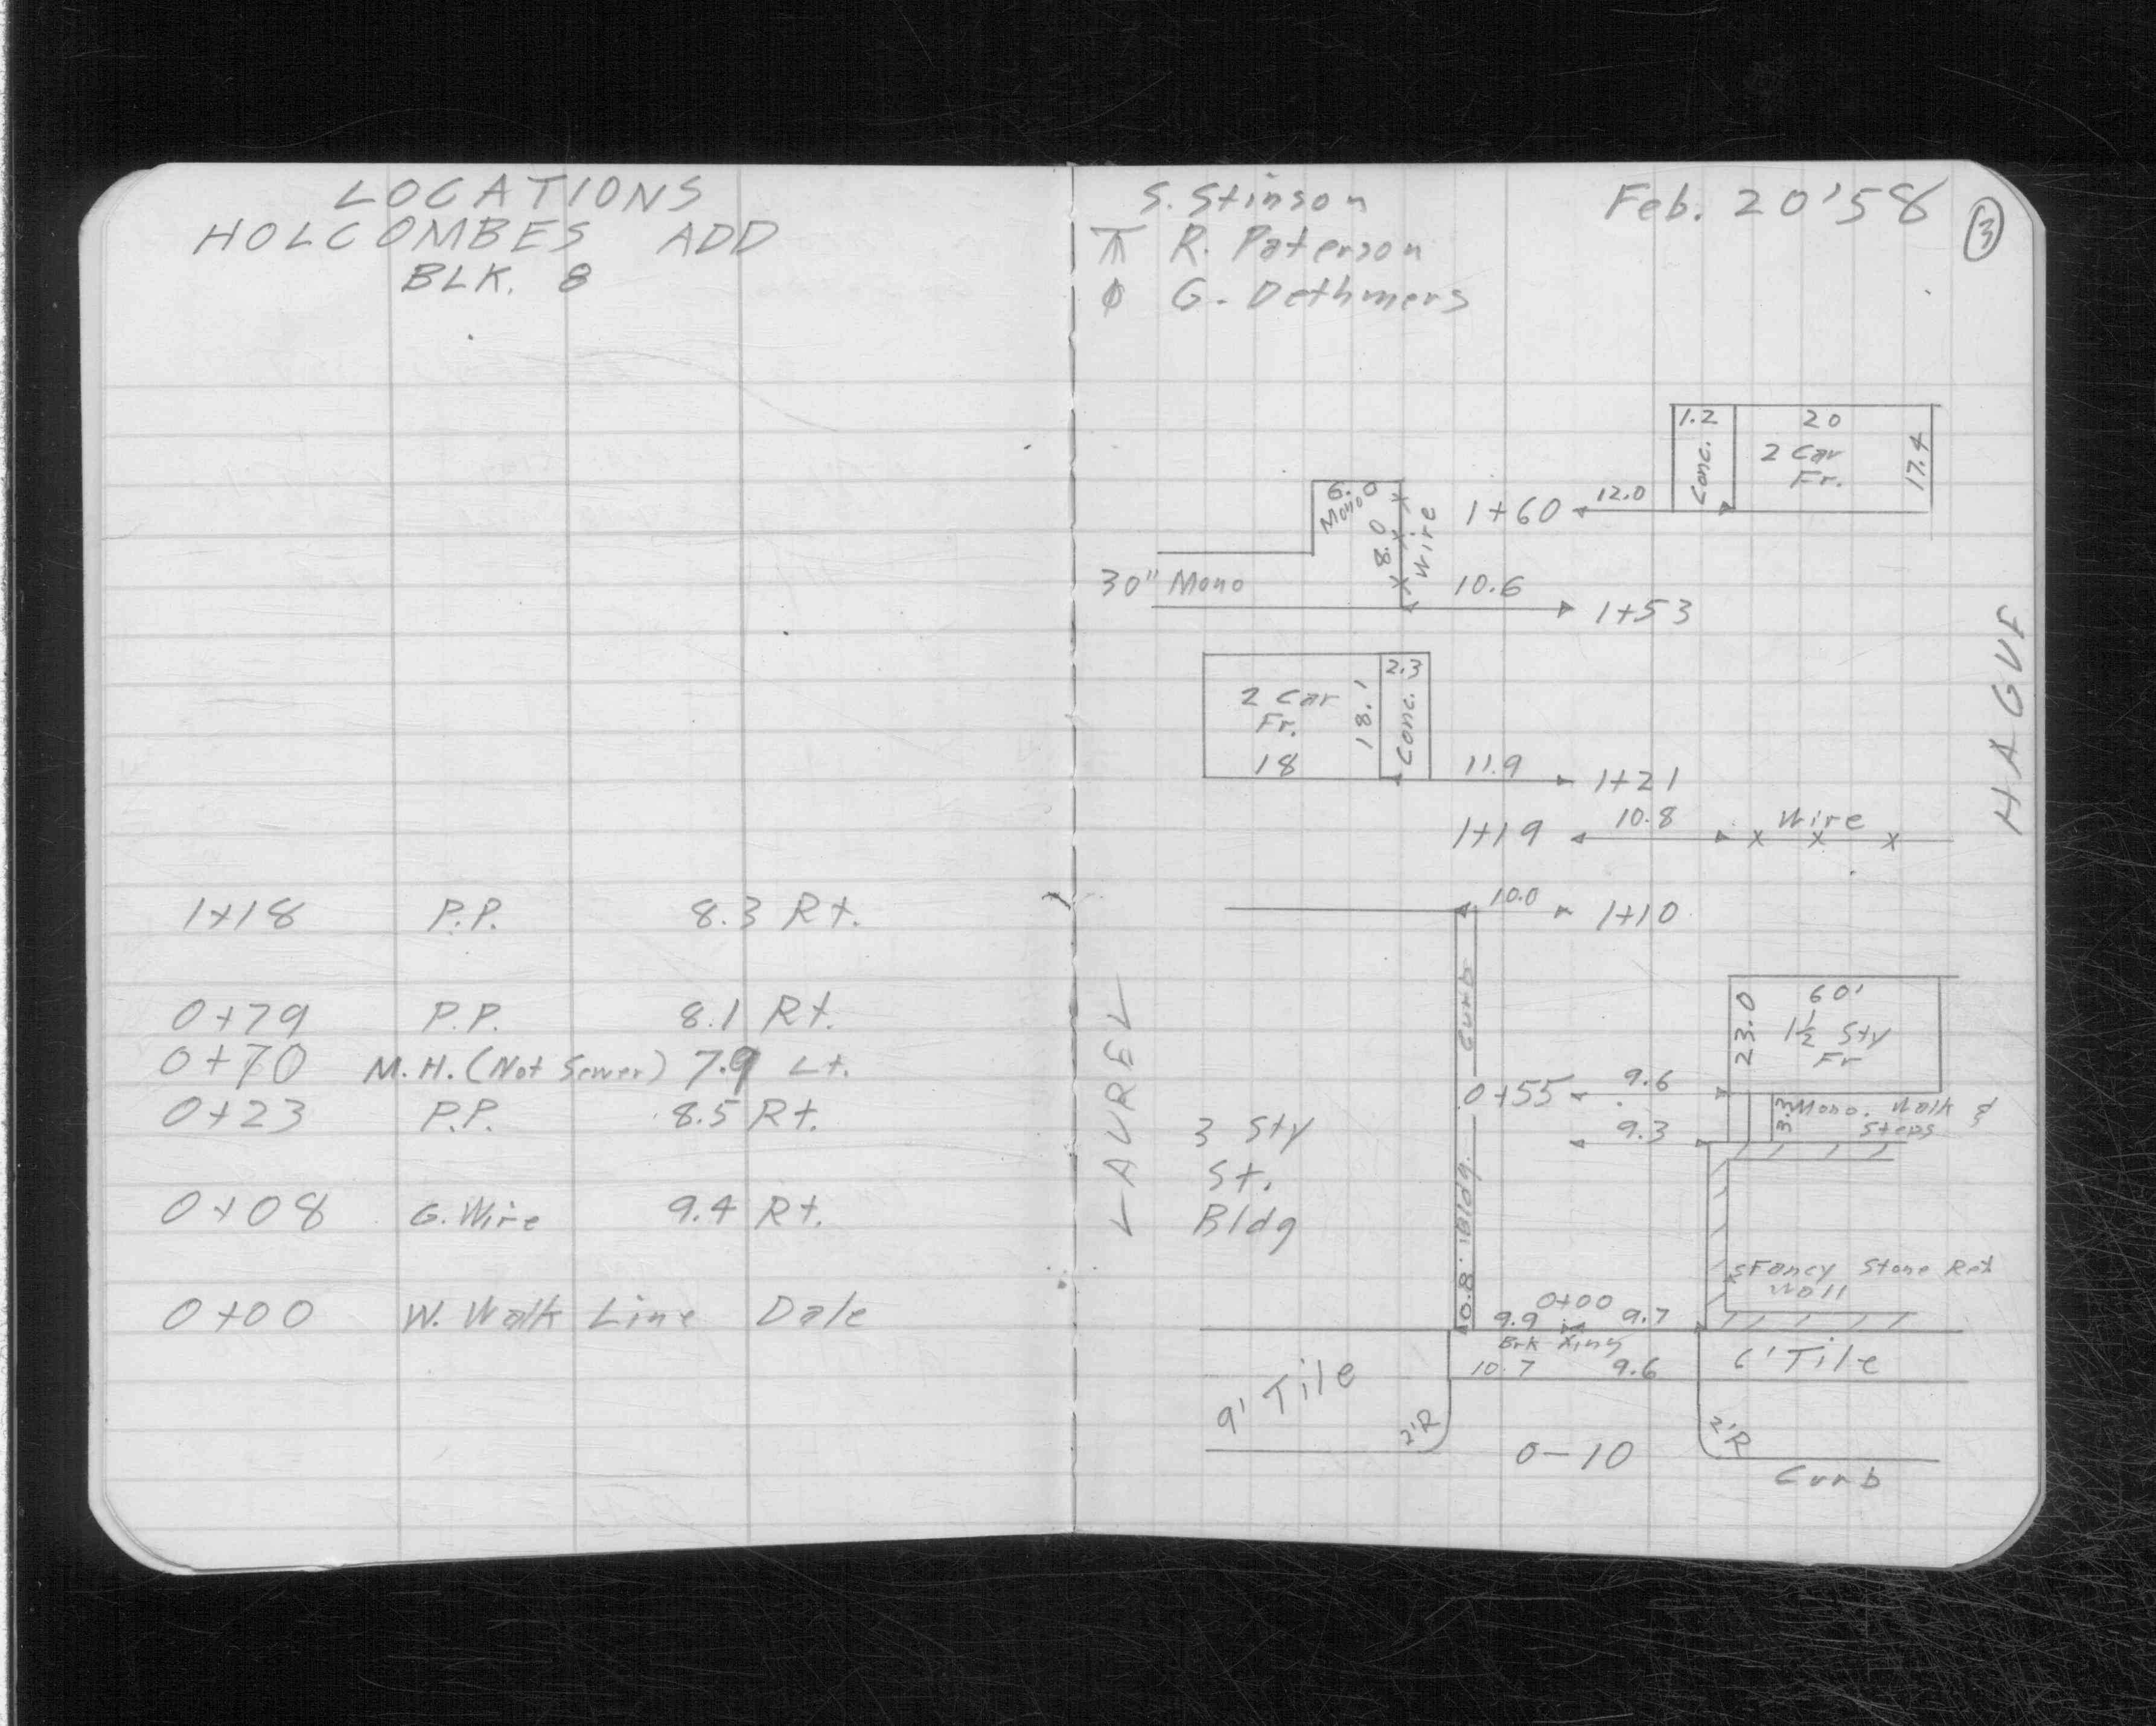 LOCATIONS
HOLCOMBES ADD
BLK. 8
1+18 P.P. 8.3 Rt.
0+79 P.P. 8.1 Rt.
0+70 M.H. (Not Sewer) 7.9 Lt.
0+23 P.P. 8.5 Rt.
0+08 G. Wire 9.4 Rt.
0+00 W. Walk Line Dale
S. Stinson
Feb. 20 '58
3
R. Paterson
G. Dethmers
1.2 20
Conc. 2 Car
Fr.
17.4
6.0
Mono
8.0
Wire
1+60 12.0
30" Mono
10.6
1+53
HAGUE
2 Car
Fr.
18
18.1
2.3
Conc.
11.9
1+21
1+19 10.8 Wire
10.0
1+10
Curb
LAUREL
60'
23.0
1½ Sty
Fr
0+55 9.6
9.3
3.3
Mono. Walk &
Steps
3 Sty
St.
Bldg
Bldg.
10.8
Fancy Stone Ret
Wall
0+00
9.9 9.7
Brk Xing
10.7 9.6
6' Tile
9' Tile
2'R
2'R
0-10
Curb